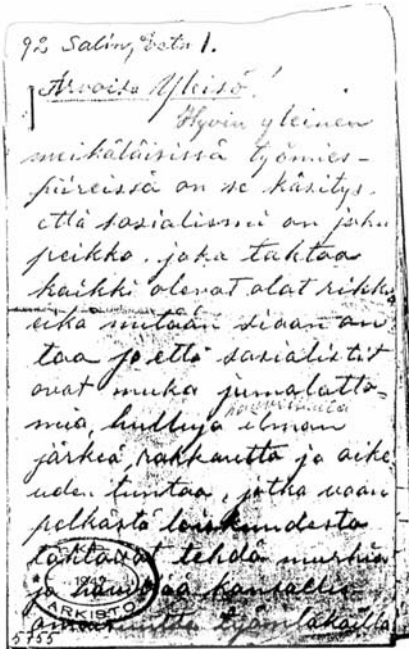 92 Salin, Eetu 1.
Arvoisa Yleisö!
Hyvin yleinen
meikäläisissä työmies-
piireissä on se käsitys
että sosialismi on joku
peikko, joka tahtoo
kaikki olevat olat rikko
eikä mitään siaan an
taa ja että sosialistit
ovat muka jumalatto-
mia, hulluja ilman
järkeä, rakkautta ja oike
uden tuntoa, jotka vaan
pelkästä laiskuudesta
tahtovat tehdä murhia
ja hävittää
1947
ARKISTO
5755